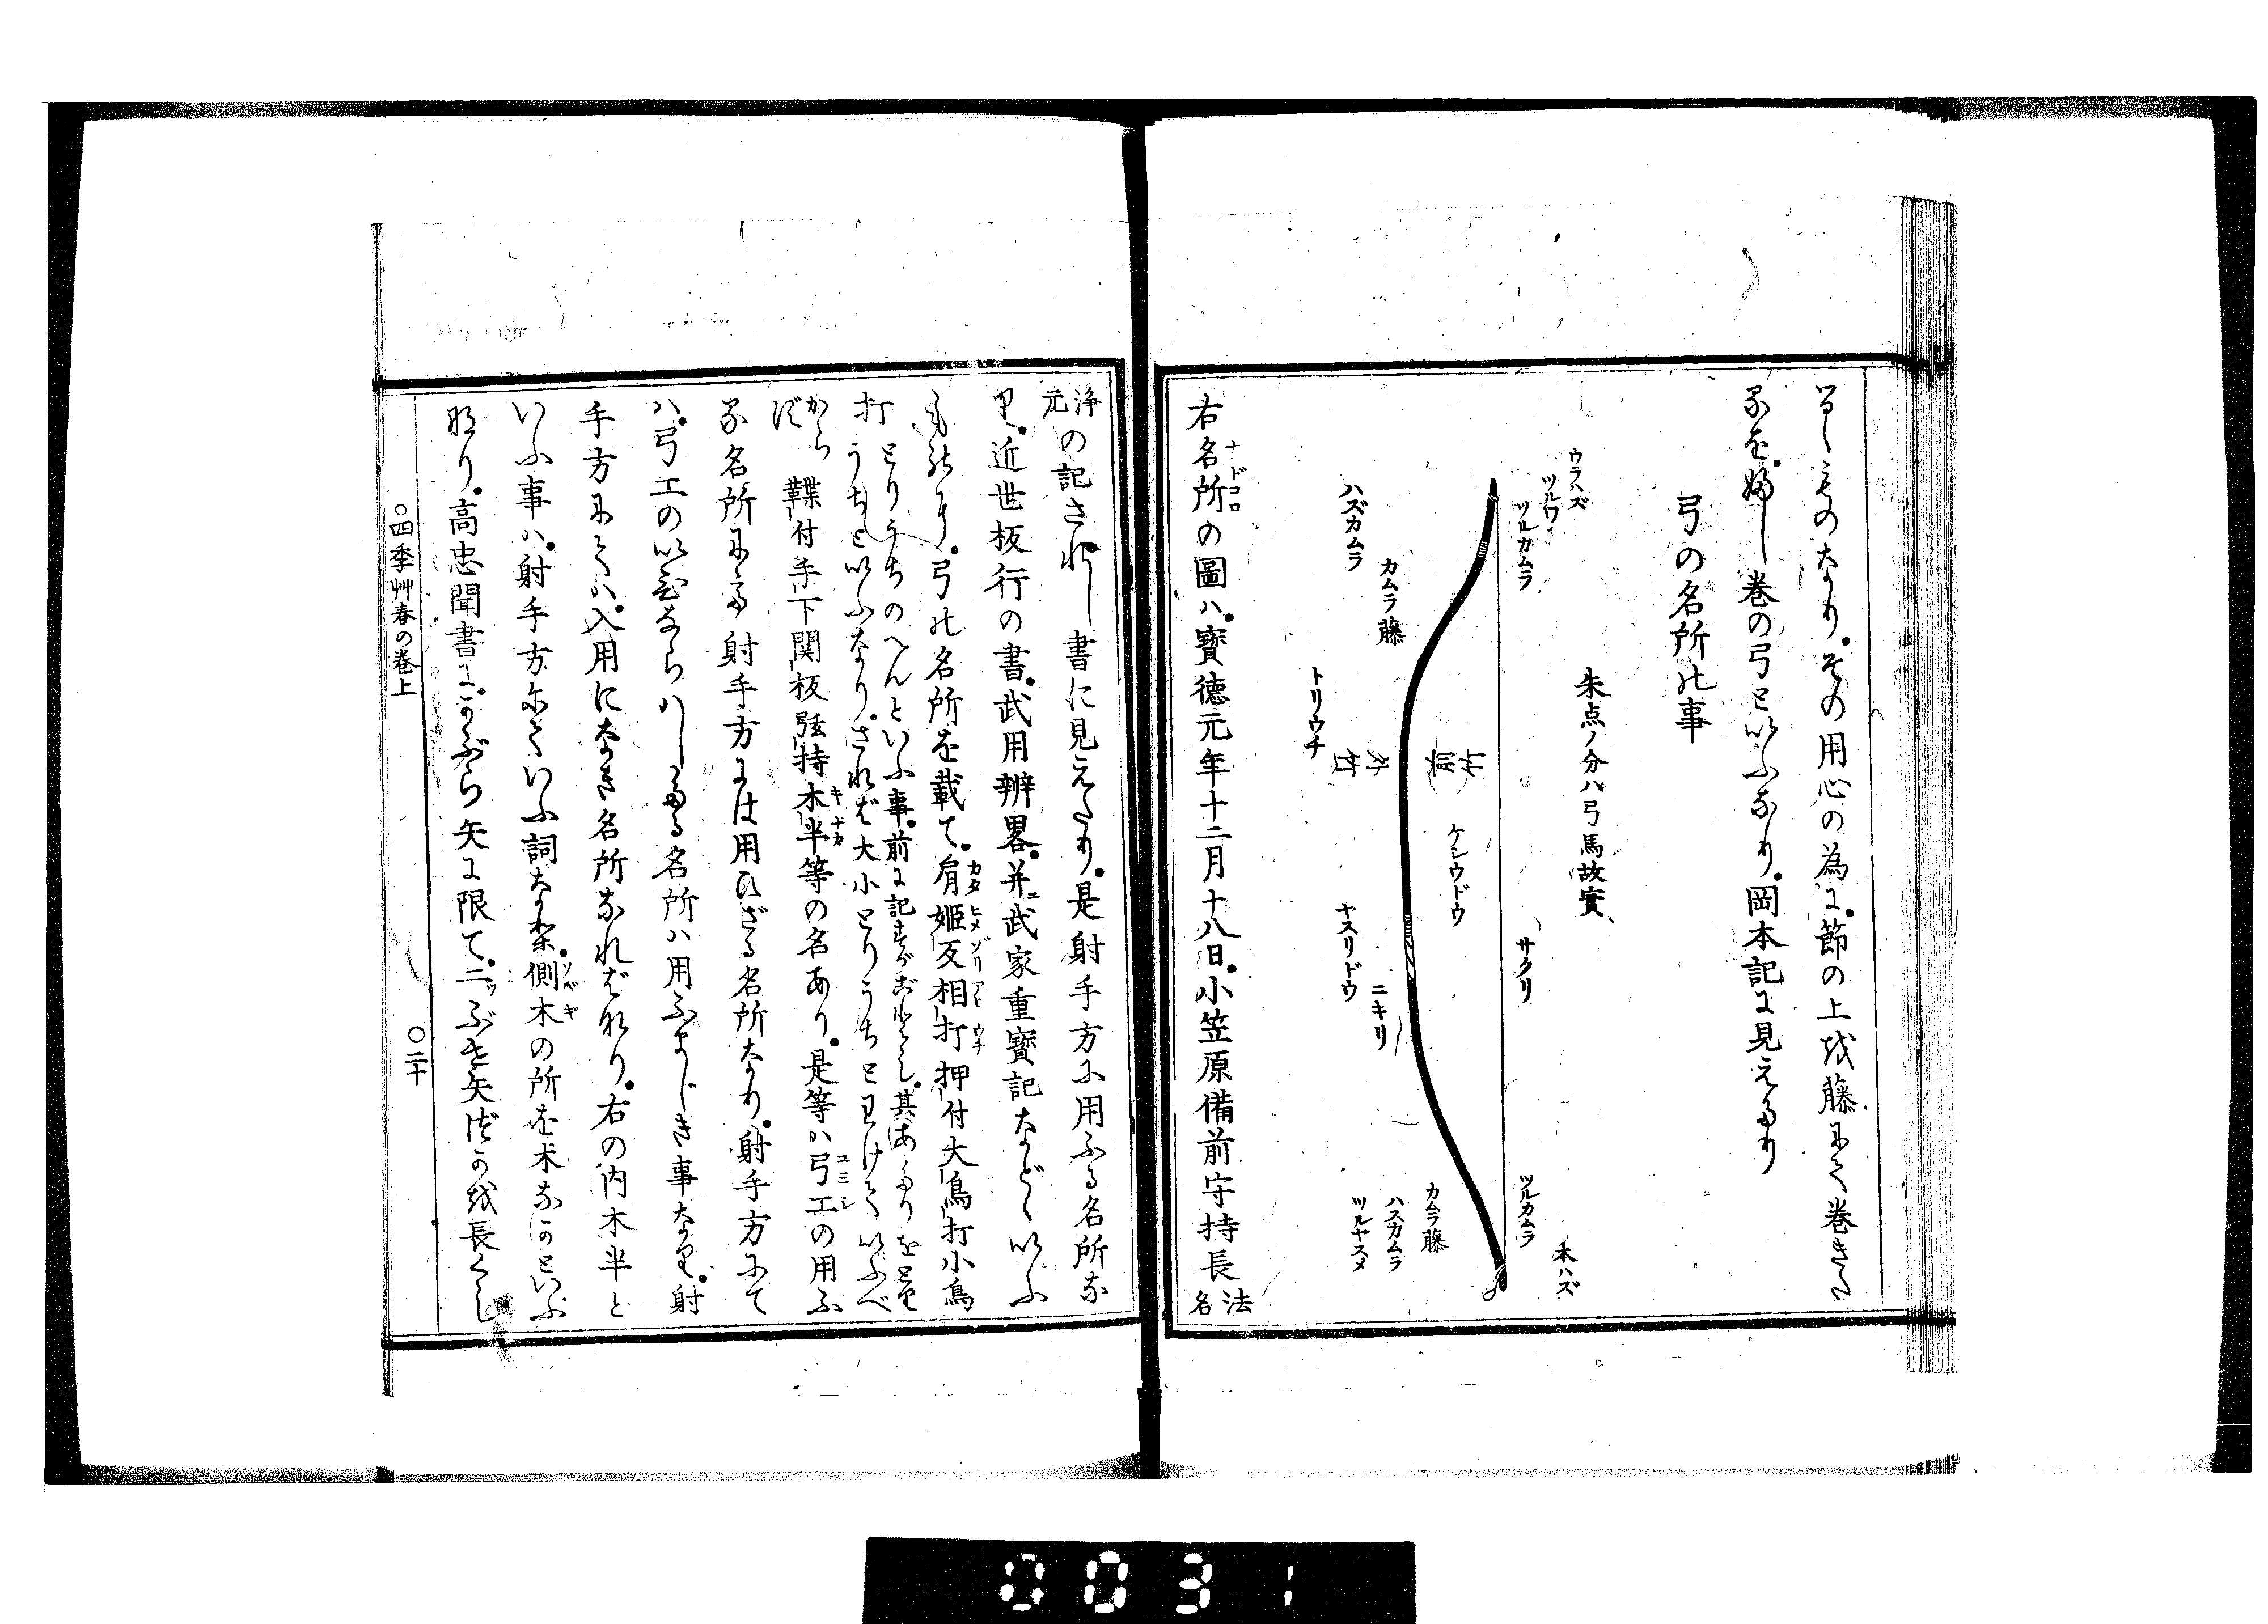 るゝ物のなり。その用心の為に。節の上を藤にて巻きた
るを。ぬし巻の弓といふなり。岡本記に見えたり
弓の名所の事
朱点ノ分ハ弓馬故實
ウラハズ
ツルワ
ツルカムラ
サクリ
ツルカムラ
本ハズ
ケシウドウ
ハズカムラ
カムラ藤
トリウチ
外竹
ヤスリドウ
ニキリ
カムラ藤
ハスカムラ
ツルヤスメ
右名所の圖ハ。寶徳元年十二月十八日。小笠原備前守持長法名
浄元の記されし書に見えたり。是射手方に用ふる名所な
り。近世板行の書。武用辨畧。并ニ武家重寶記などゝいふ
ものに。弓の名所を載て。肩姫反相打押付大鳥打小鳥
打とりうちのへんといふ事。前に記すがごとし。其あたりをとり
うちといふなり。されば大小とりうちとわけていふべ
からず鞢付手下関板弦持木半等の名あり。是等ハ弓工の用ふ
る名所にて射手方には用ひざる名所なり。射手方にて
ハ。弓工のいひならハしたる名所ハ用ふまじき事なり。射
手方にてハ。入用になき名所なればなり。右の内木半と
いふ事ハ。射手方にていふ詞なれ。側木の所を木なかといふ
なり。高忠聞書に。かぶら矢に限て。二ツぶせ矢づかを長くし
○四季艸春の巻上
○二十
0031